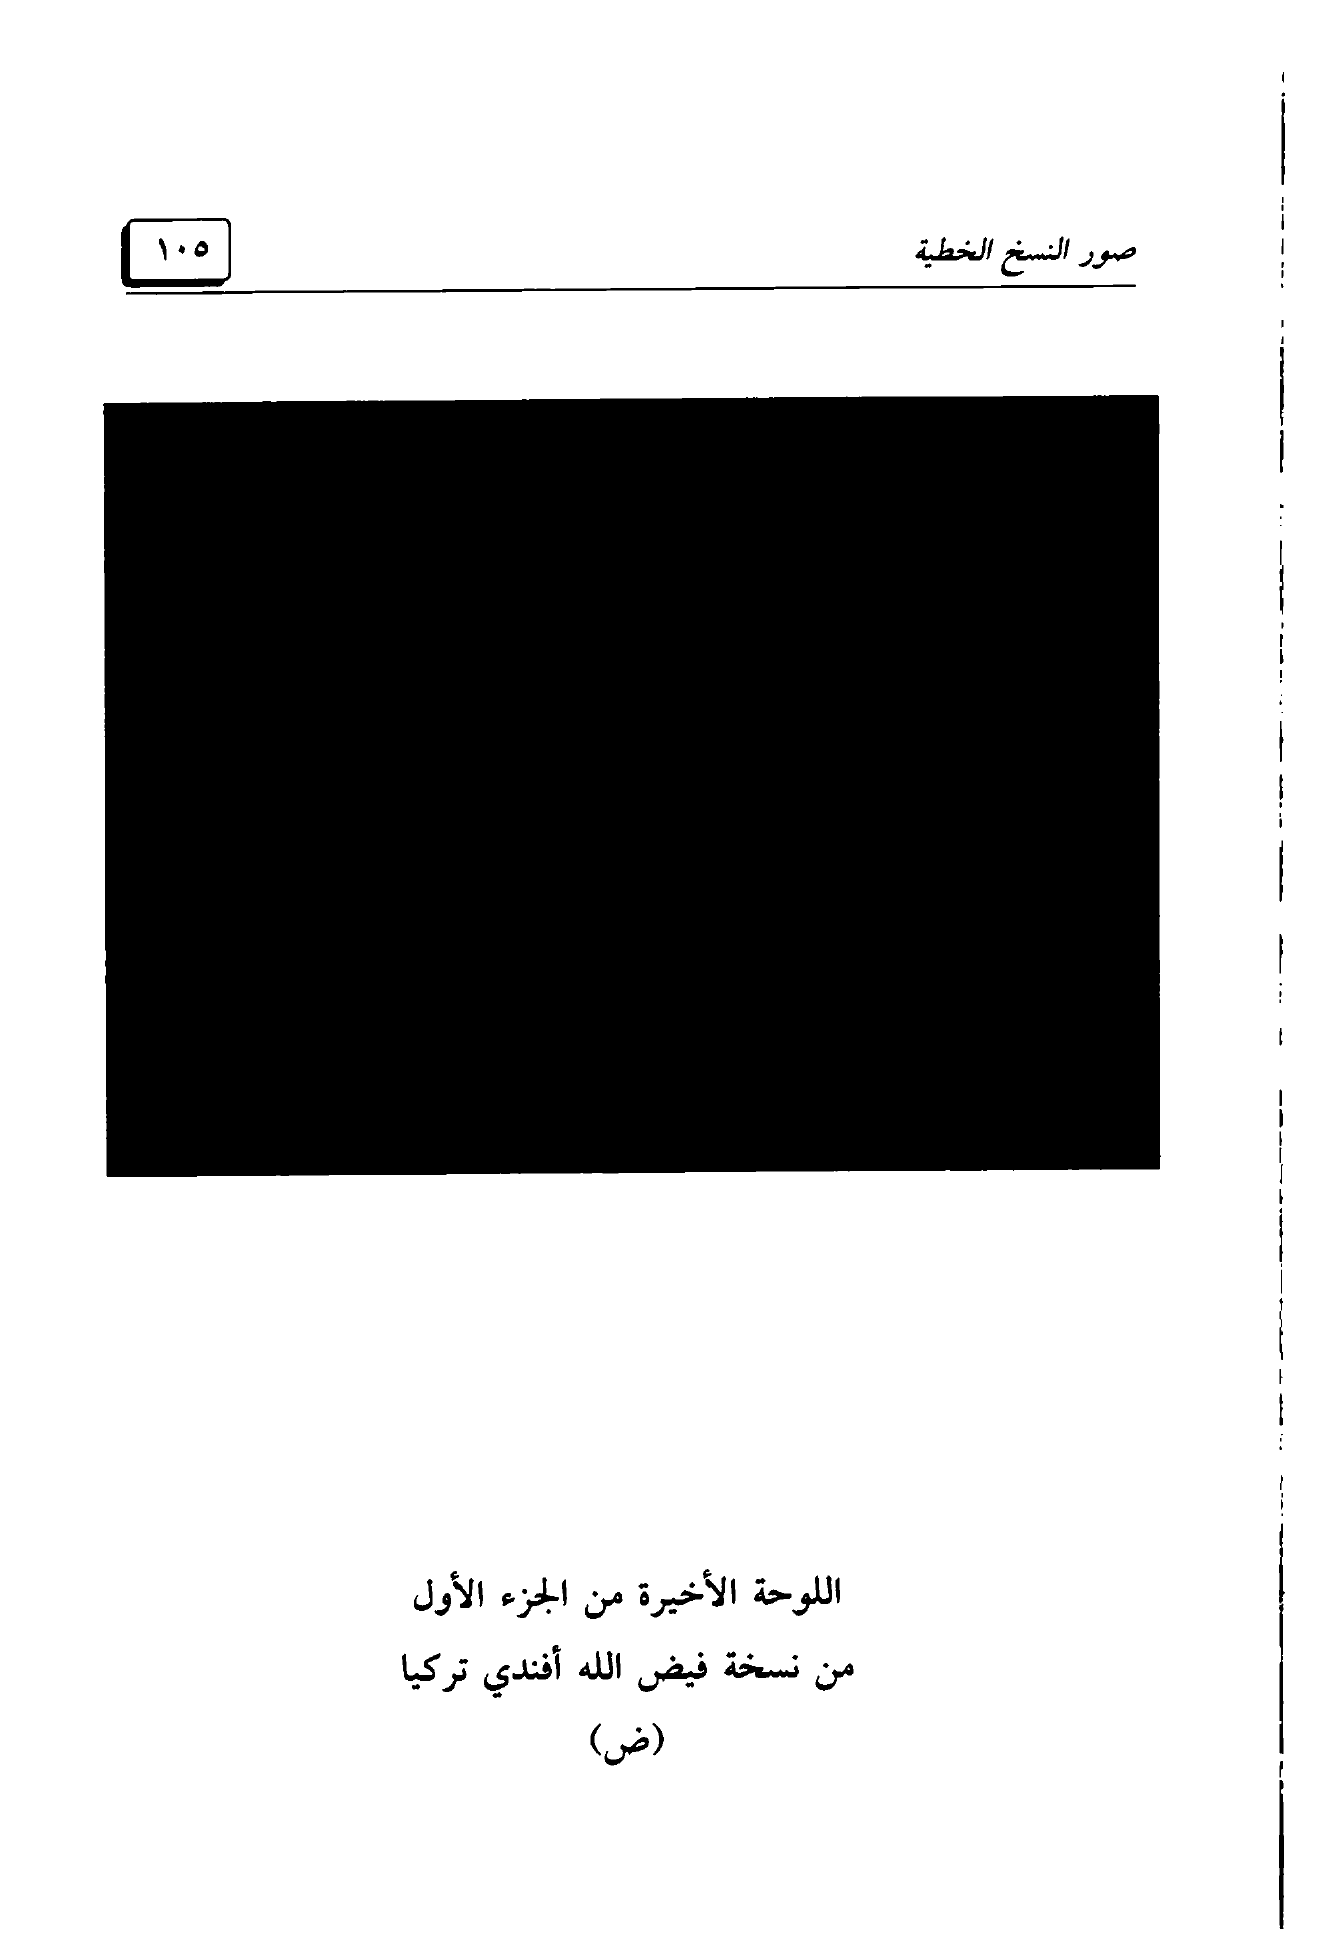 صور النسخ الخطية
١٠٥
اللوحة الأخيرة من الجزء الأول
من نسخة فيض الله أفندي تركيا
(ض)